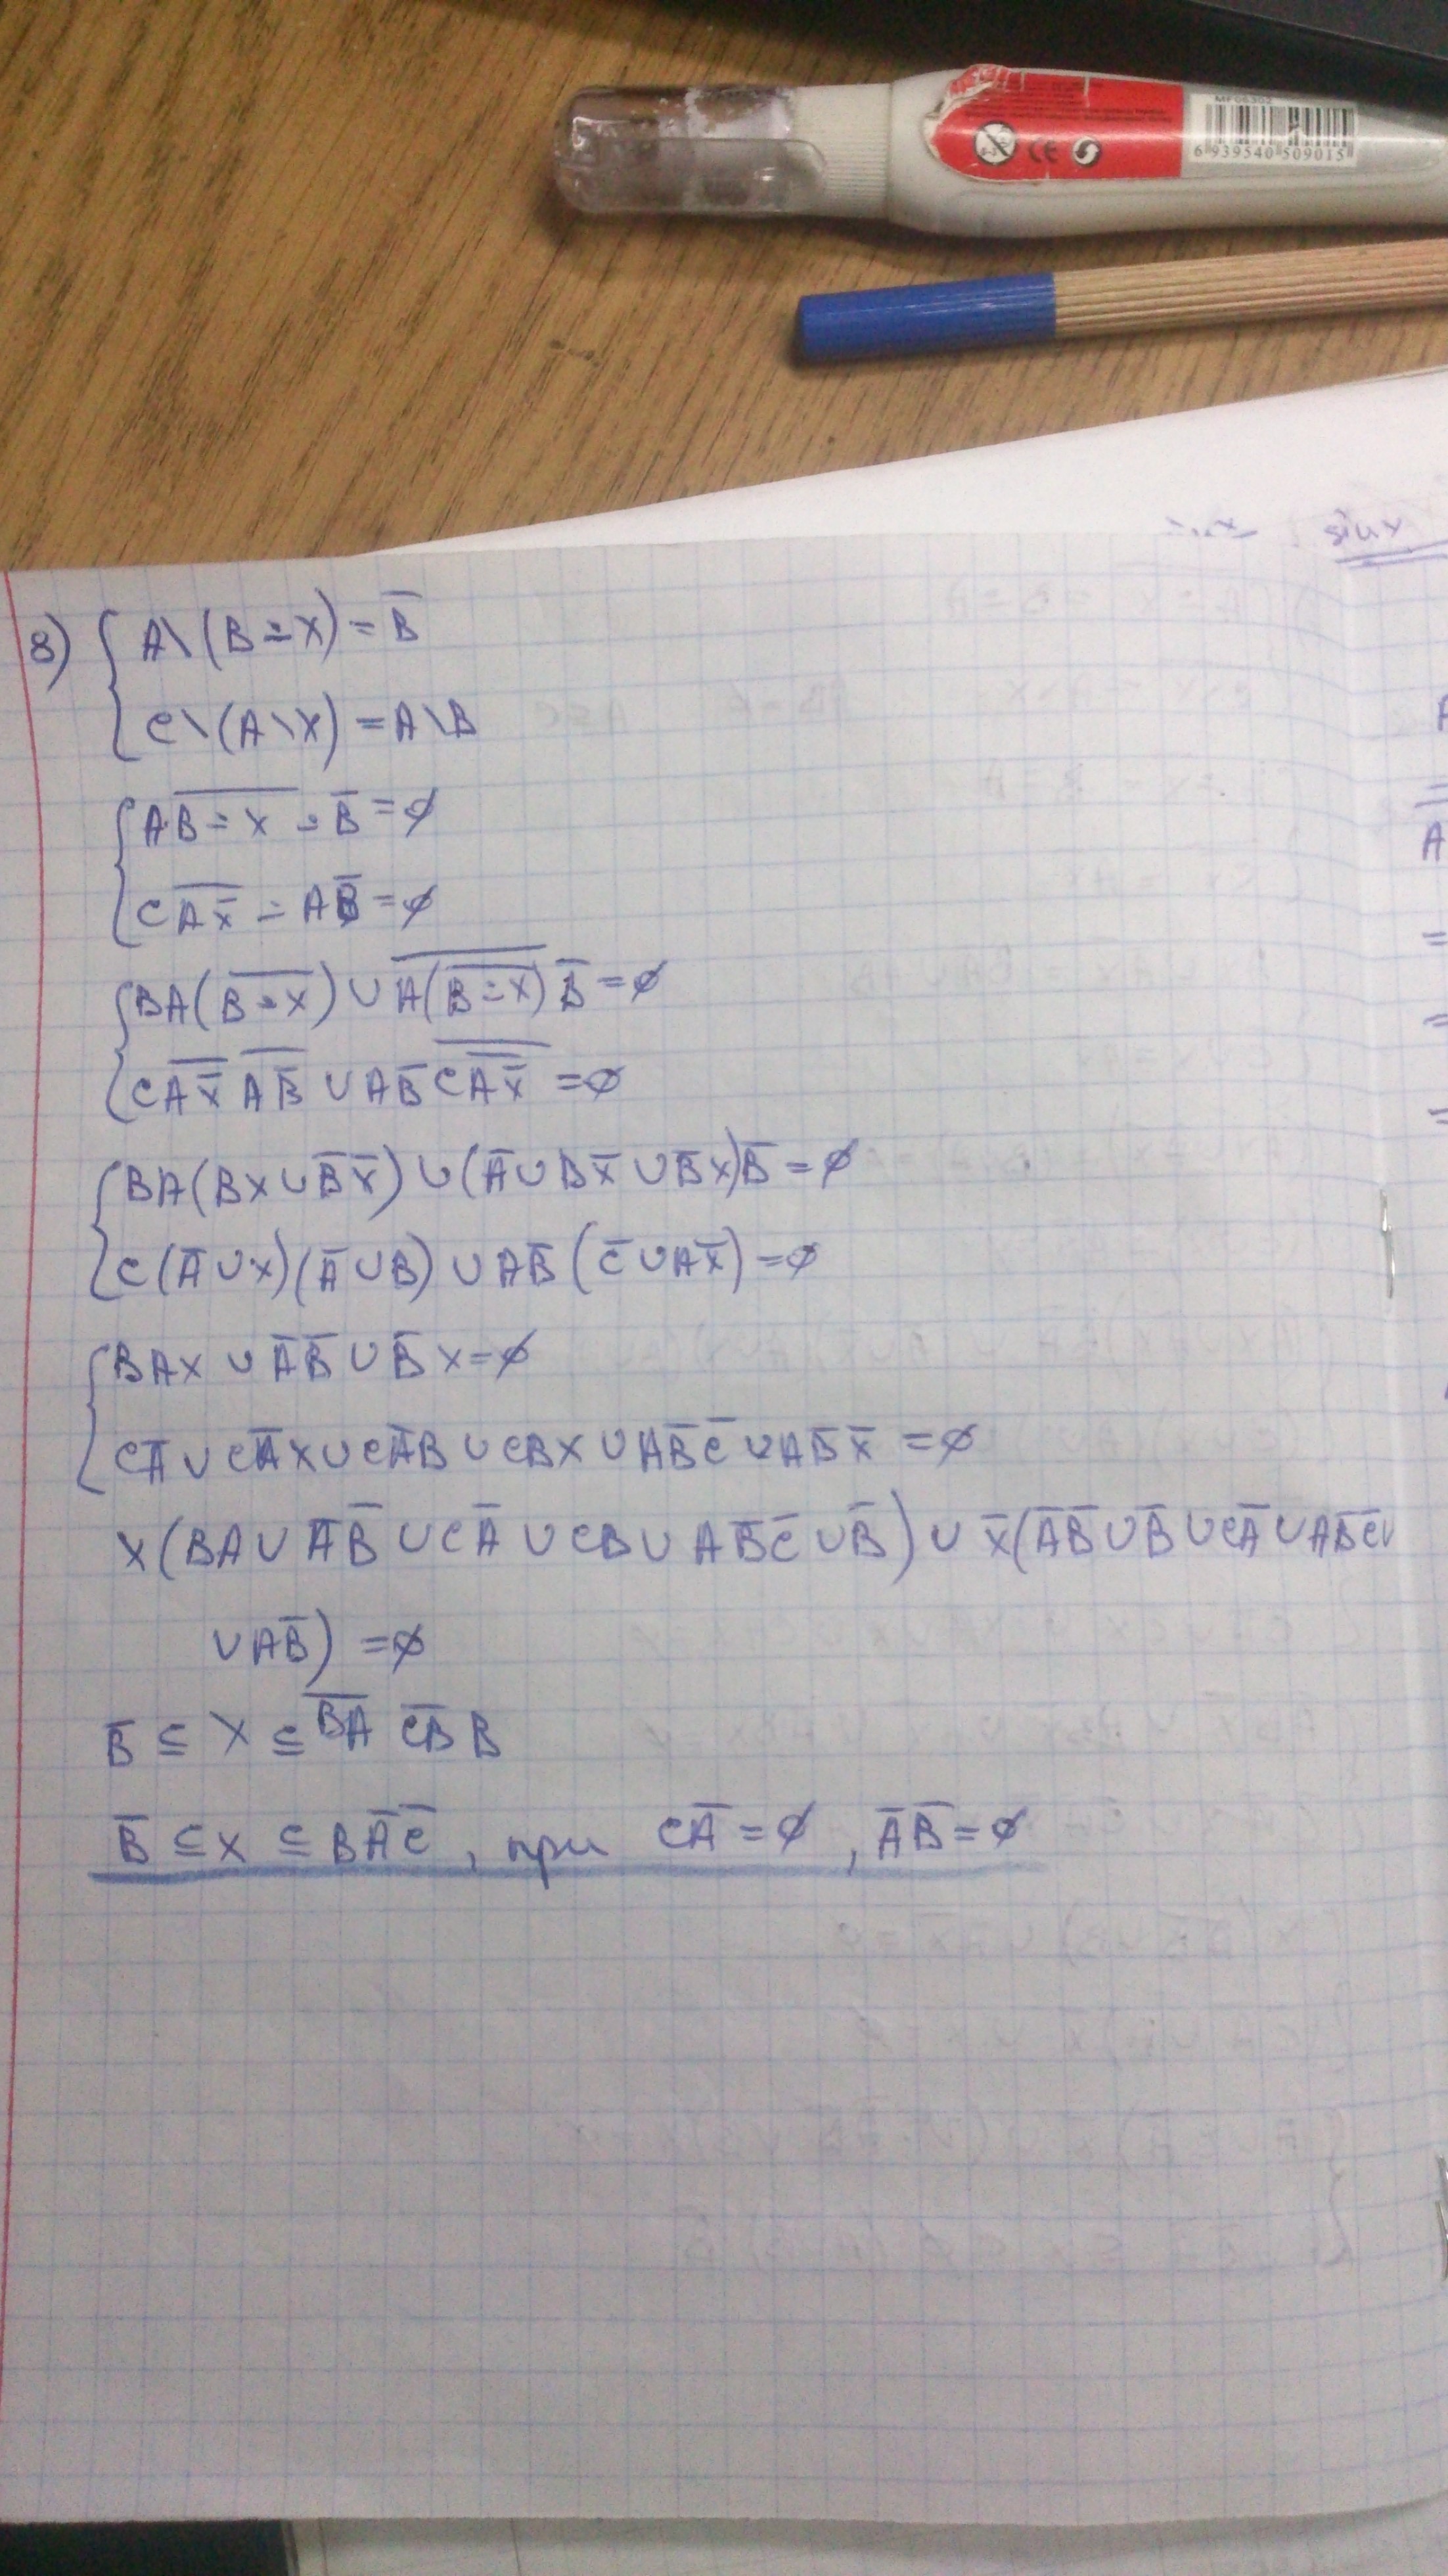 MF06302
6 939540 509015
CE
sinx
8) { A\(B∸X) = B̅
C\(A\X) = A\B
{ A·\overline{B∸X} ∸ B̅ = ∅
C\overline{AX̅} ∸ AB̅ = ∅
{ BA(\overline{B∸X}) ∪ \overline{A(\overline{B∸X})} B̅ = ∅
C\overline{AX̅} \overline{AB̅} ∪ AB̅ \overline{C\overline{AX̅}} = ∅
{ BA(BX∪B̅X̅) ∪ (A̅∪BX̅∪B̅X)B̅ = ∅
C(A̅∪X)(A̅∪B) ∪ AB̅(C̅∪AX̅) = ∅
{ BAX ∪ A̅B̅ ∪ B̅X = ∅
CA̅ ∪ CA̅X ∪ CA̅B ∪ CBX ∪ AB̅C̅ ∪ AB̅X̅ = ∅
X(BA∪A̅B̅∪CA̅∪CB∪AB̅C̅∪B̅) ∪ X̅(A̅B̅∪B̅∪CA̅∪AB̅C̅∪
∪AB̅) = ∅
B̅ ⊆ X ⊆ \overline{BA} \overline{CB} B
B̅ ⊆ X ⊆ BA̅C̅, при CA̅ = ∅, A̅B̅ = ∅